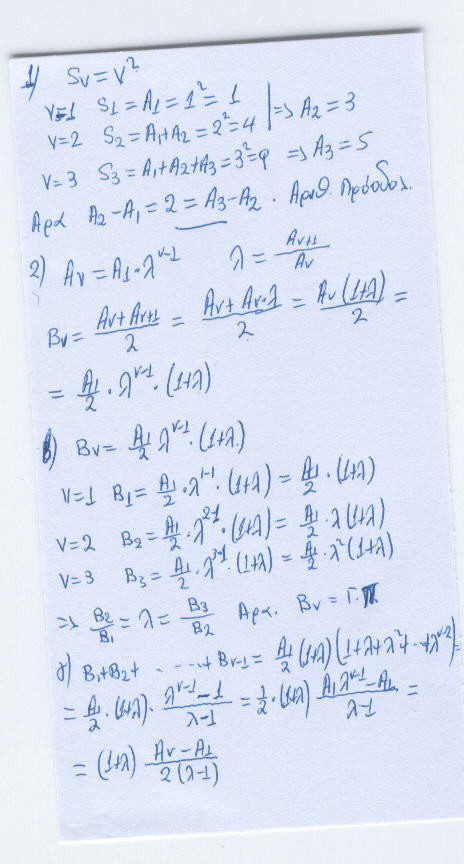 1) Sν = ν²
ν=1 S1 = A1 = 1² = 1
ν=2 S2 = A1+A2 = 2² = 4 | => A2 = 3
ν=3 S3 = A1+A2+A3 = 3² = 9 => A3 = 5
Αρα A2-A1 = 2 = A3-A2. Αριθ. Πρόοδος.
2) Aν = A1·λ^ν-1 λ = Aν+1/Aν
Bν = Aν+Aν+1/2 = Aν+Aν·λ/2 = Aν(1+λ)/2 =
= A1/2 · λ^ν-1 · (1+λ)
β) Bν = A1/2 λ^ν-1 · (1+λ)
ν=1 B1 = A1/2 · λ^1-1 · (1+λ) = A1/2 · (1+λ)
ν=2 B2 = A1/2 · λ^2-1 · (1+λ) = A1/2 · λ(1+λ)
ν=3 B3 = A1/2 · λ^3-1 · (1+λ) = A1/2 · λ²(1+λ)
=> B2/B1 = λ = B3/B2 Αρα. Bν = Γ.Π.
γ) B1+B2+ ·····+Bν-1 = A1/2 (1+λ)(1+λ+λ²+··+λ^ν-2) =
= A1/2 · (1+λ) · λ^ν-1 - 1/λ-1 = 1/2 · (1+λ) A1λ^ν-1 - A1/λ-1 =
= (1+λ) Aν-A1/2(λ-1)